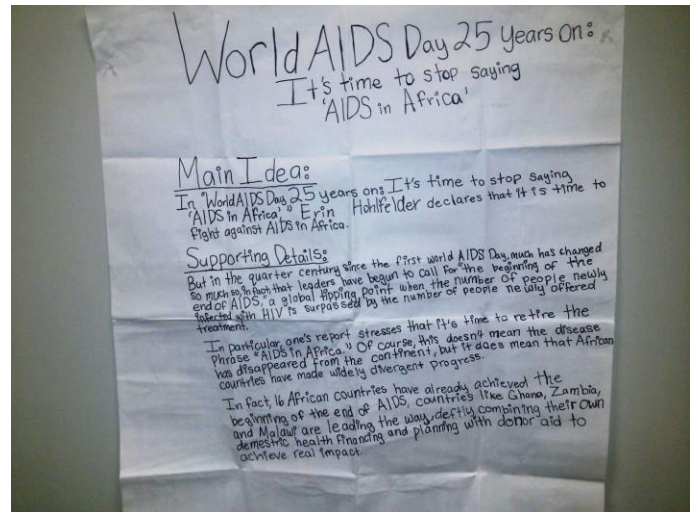 World AIDS Day 25 Years On:
It's time to stop saying
'AIDS in Africa'
Main Idea:
In "World AIDS Day 25 years on: It's time to stop saying
'AIDS in Africa'," Erin Hohlfelder declares that it is time to
fight against AIDS in Africa.
Supporting Details:
But in the quarter century since the first world AIDS Day, much has changed
so much so, in fact, that leaders have begun to call for "the beginning of the
end of AIDS," a global tipping point when the number of people newly
infected with HIV is surpassed by the number of people newly offered
treatment.
In particular, one's report stresses that it's time to retire the
phrase "AIDS in Africa." Of course, this doesn't mean the disease
has disappeared from the continent, but it does mean that African
countries have made widely divergent progress.
In fact, 16 African countries have already achieved the
beginning of the end of AIDS, countries like Ghana, Zambia,
and Malawi are leading the way, deftly combining their own
demestric health financing and planning with donor aid to
achieve real impact.